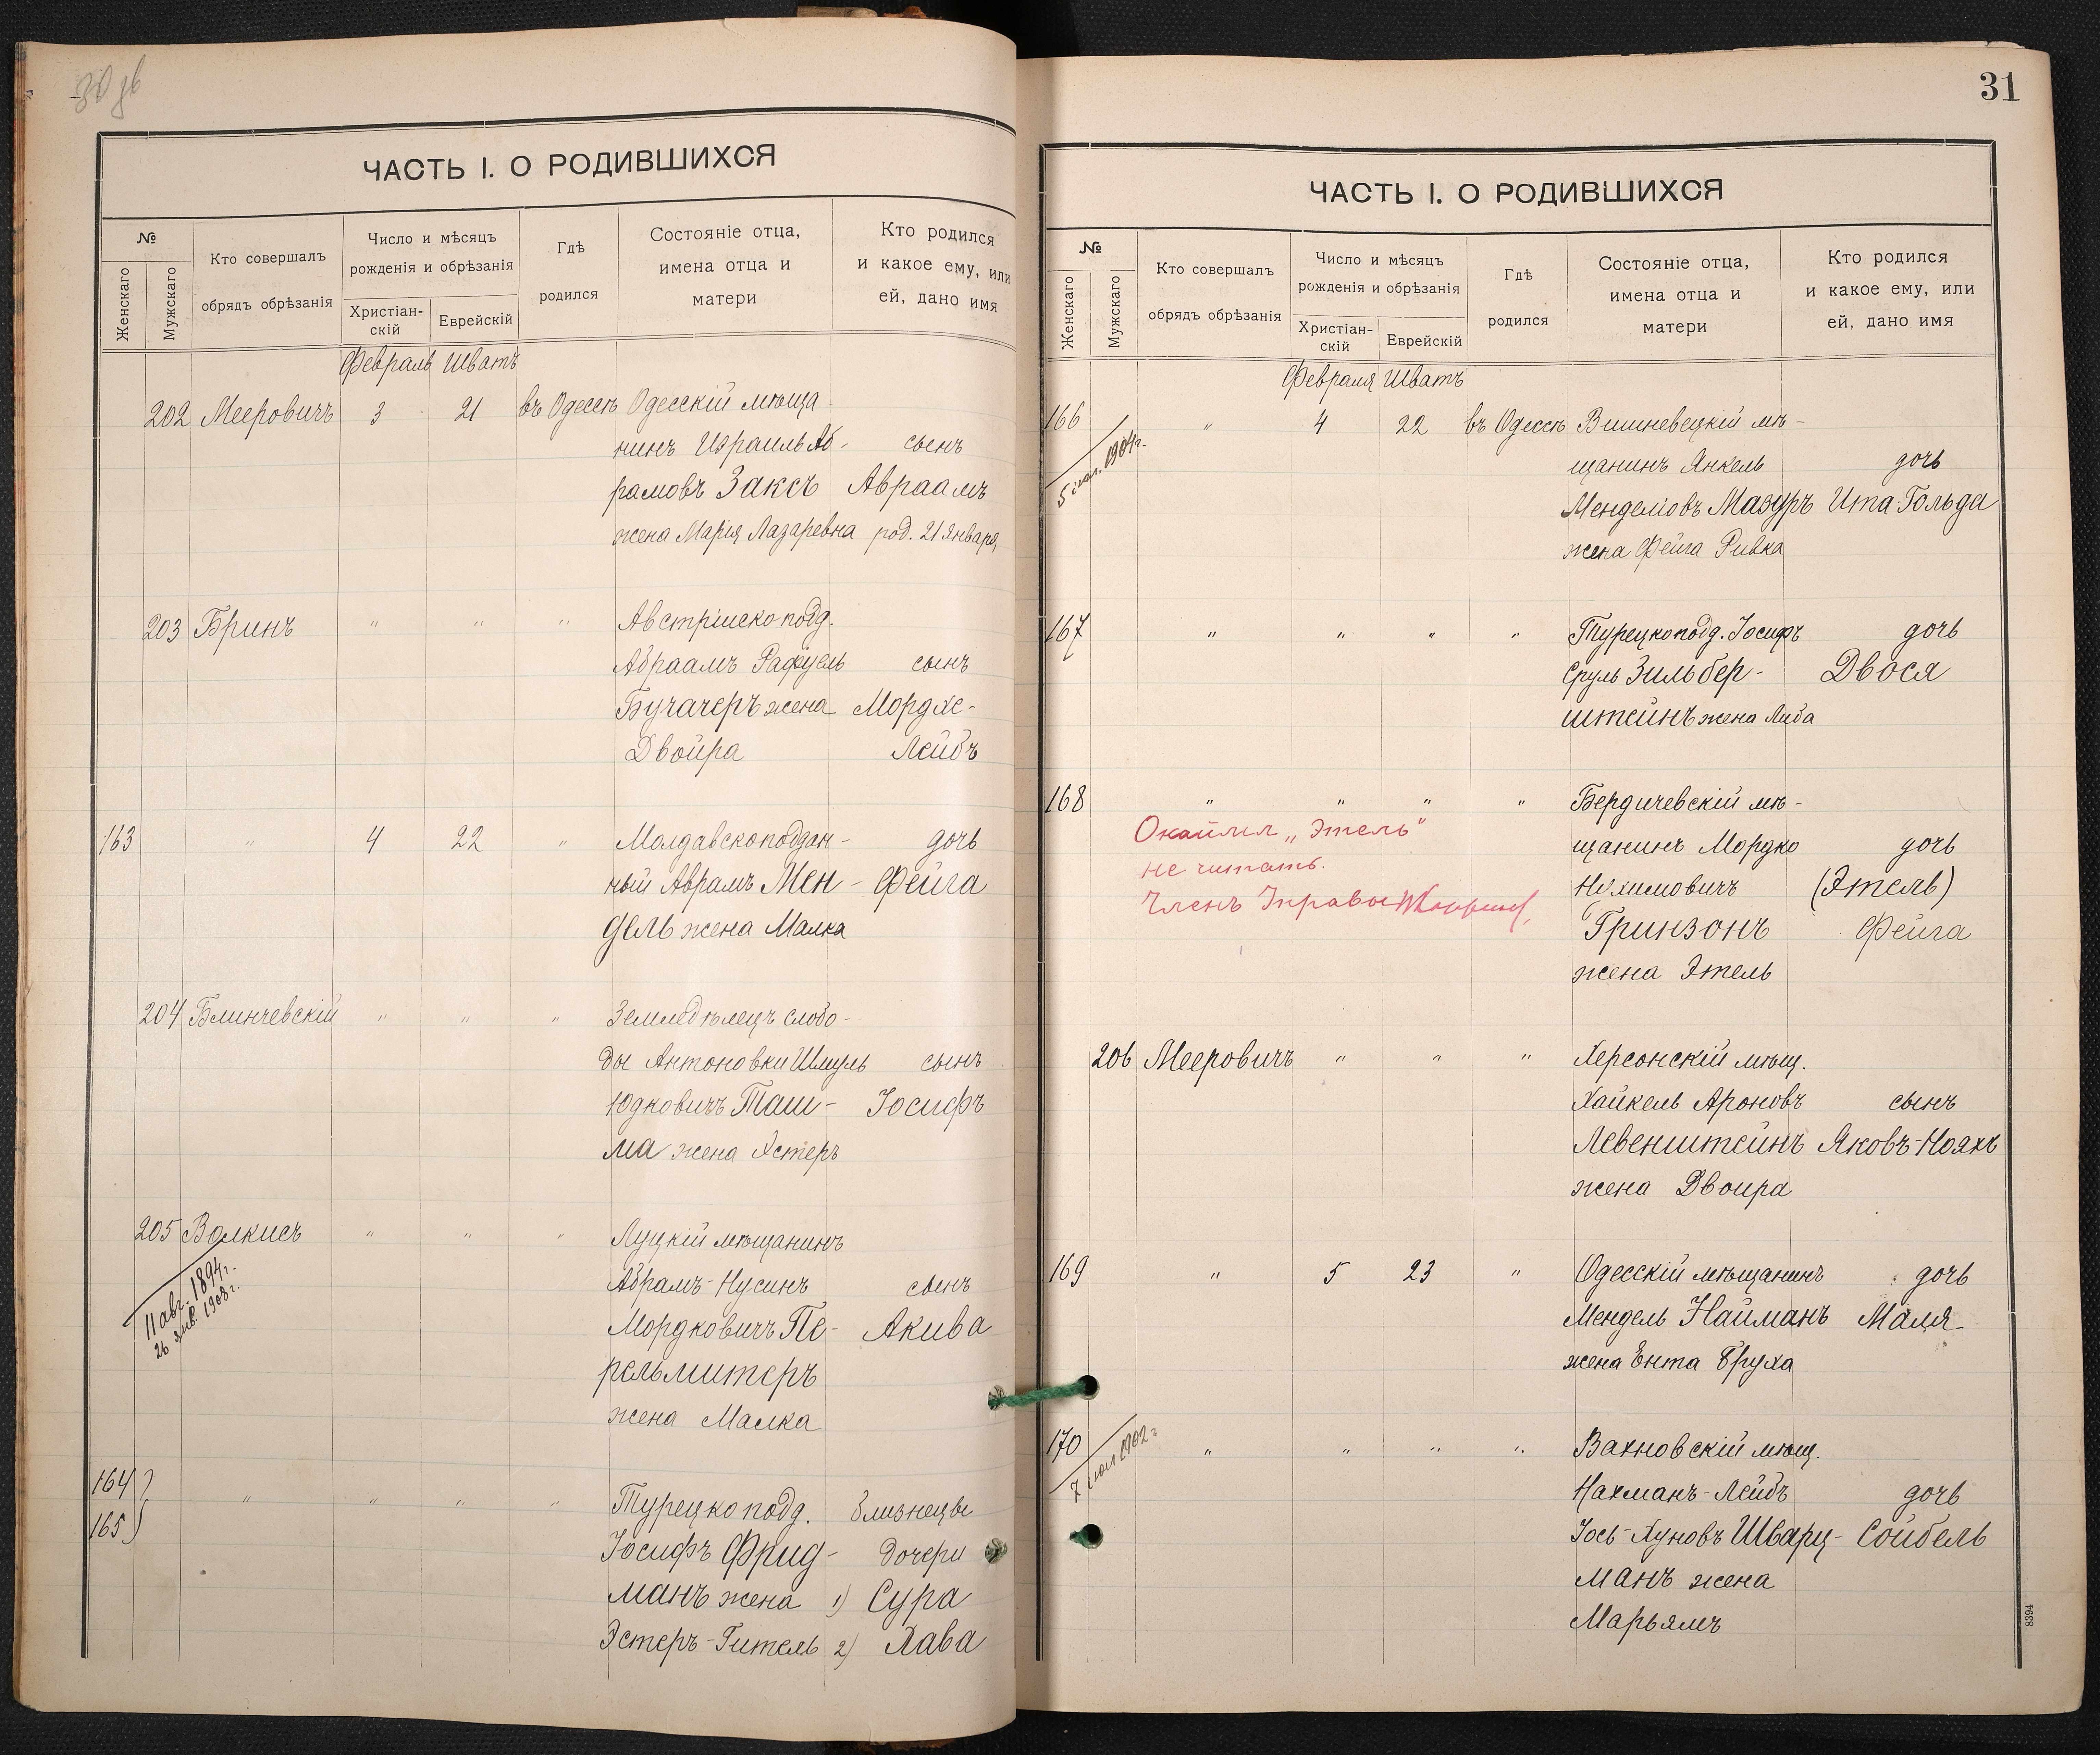 30 зв
ЧАСТЬ I. О РОДИВШИХСЯ
№
Женскаго
Мужскаго
Кто совершалъ
обрядъ обрѣзанія
Число и мѣсяцъ
рожденія и обрѣзанія
Христіан-
скій
Еврейскій
Гдѣ
родился
Состояніе отца,
имена отца и
матери
Кто родился
и какое ему, или
ей, дано имя
Февраль Шватъ
202 Мееровичъ 3 21 въ Одессѣ Одесскій мѣща-
нинъ Израиль Аб- сынъ
рамовъ Заксъ Авраамъ
жена Марія Лазаревна род. 21 Января
203 Бринъ " " " Австрійскоподд.
Абраамъ Рафуель сынъ
Бучачеръ жена Мордхе-
Двойра Лейбъ
163 " 4 22 " Молдавскоподдан- дочь
ный Аврамъ Мен- Фейга
дель жена Малка
204 Блинчевскій " " " Земледѣлецъ слобо-
ды Антоновки Шмуль сынъ
Юдковичъ Таш- Іосифъ
ма жена Эстеръ
205 Волкисъ " " " Луцкій мѣщанинъ
11 авг. 1894 г.
26 янв. 1908 г.
Абрамъ-Нусинъ сынъ
Мордковичъ Пе- Акива
рельмитеръ
жена Малка
164)
165) " " " " Турецкоподд. близнецы
Іосифъ Фрид- дочери
манъ жена 1) Сура
Эстеръ-Гитель 2) Хава
31
ЧАСТЬ I. О РОДИВШИХСЯ
№
Женскаго
Мужскаго
Кто совершалъ
обрядъ обрѣзанія
Число и мѣсяцъ
рожденія и обрѣзанія
Христіан-
скій
Еврейскій
Гдѣ
родился
Состояніе отца,
имена отца и
матери
Кто родился
и какое ему, или
ей, дано имя
Февраля Шватъ
166 " 4 22 въ Одессѣ Вишневецкій мѣ-
1904 г.
щанинъ Янкель дочь
Менделовъ Мазуръ Ита-Гольда
жена Фейга Ривка
167 " " " " Турецкоподд. Іосифъ дочь
Сруль Зильбер- Двося
штейнъ жена Либа
168 " " " " Бердичевскій мѣ-
Окаймл. „Этель"
не читать.
Членъ Управы
щанинъ Мордко дочь
Нухимовичъ (Этель)
Гринзонъ Фейга
жена Этель
206 Мееровичъ " " " Херсонскій мѣщ.
Хайкель Ароновъ сынъ
Левенштейнъ Яковъ-Нояхъ
жена Двойра
169 " 5 23 " Одесскій мѣщанинъ дочь
Мендель Найманъ Маля
жена Ента Бруха
170 " " " " Вахновскій мѣщ.
1902 г.
Нахманъ-Лейбъ дочь
Іось-Хуновъ Шварц- Сойбель
манъ жена
Марьямъ
8394